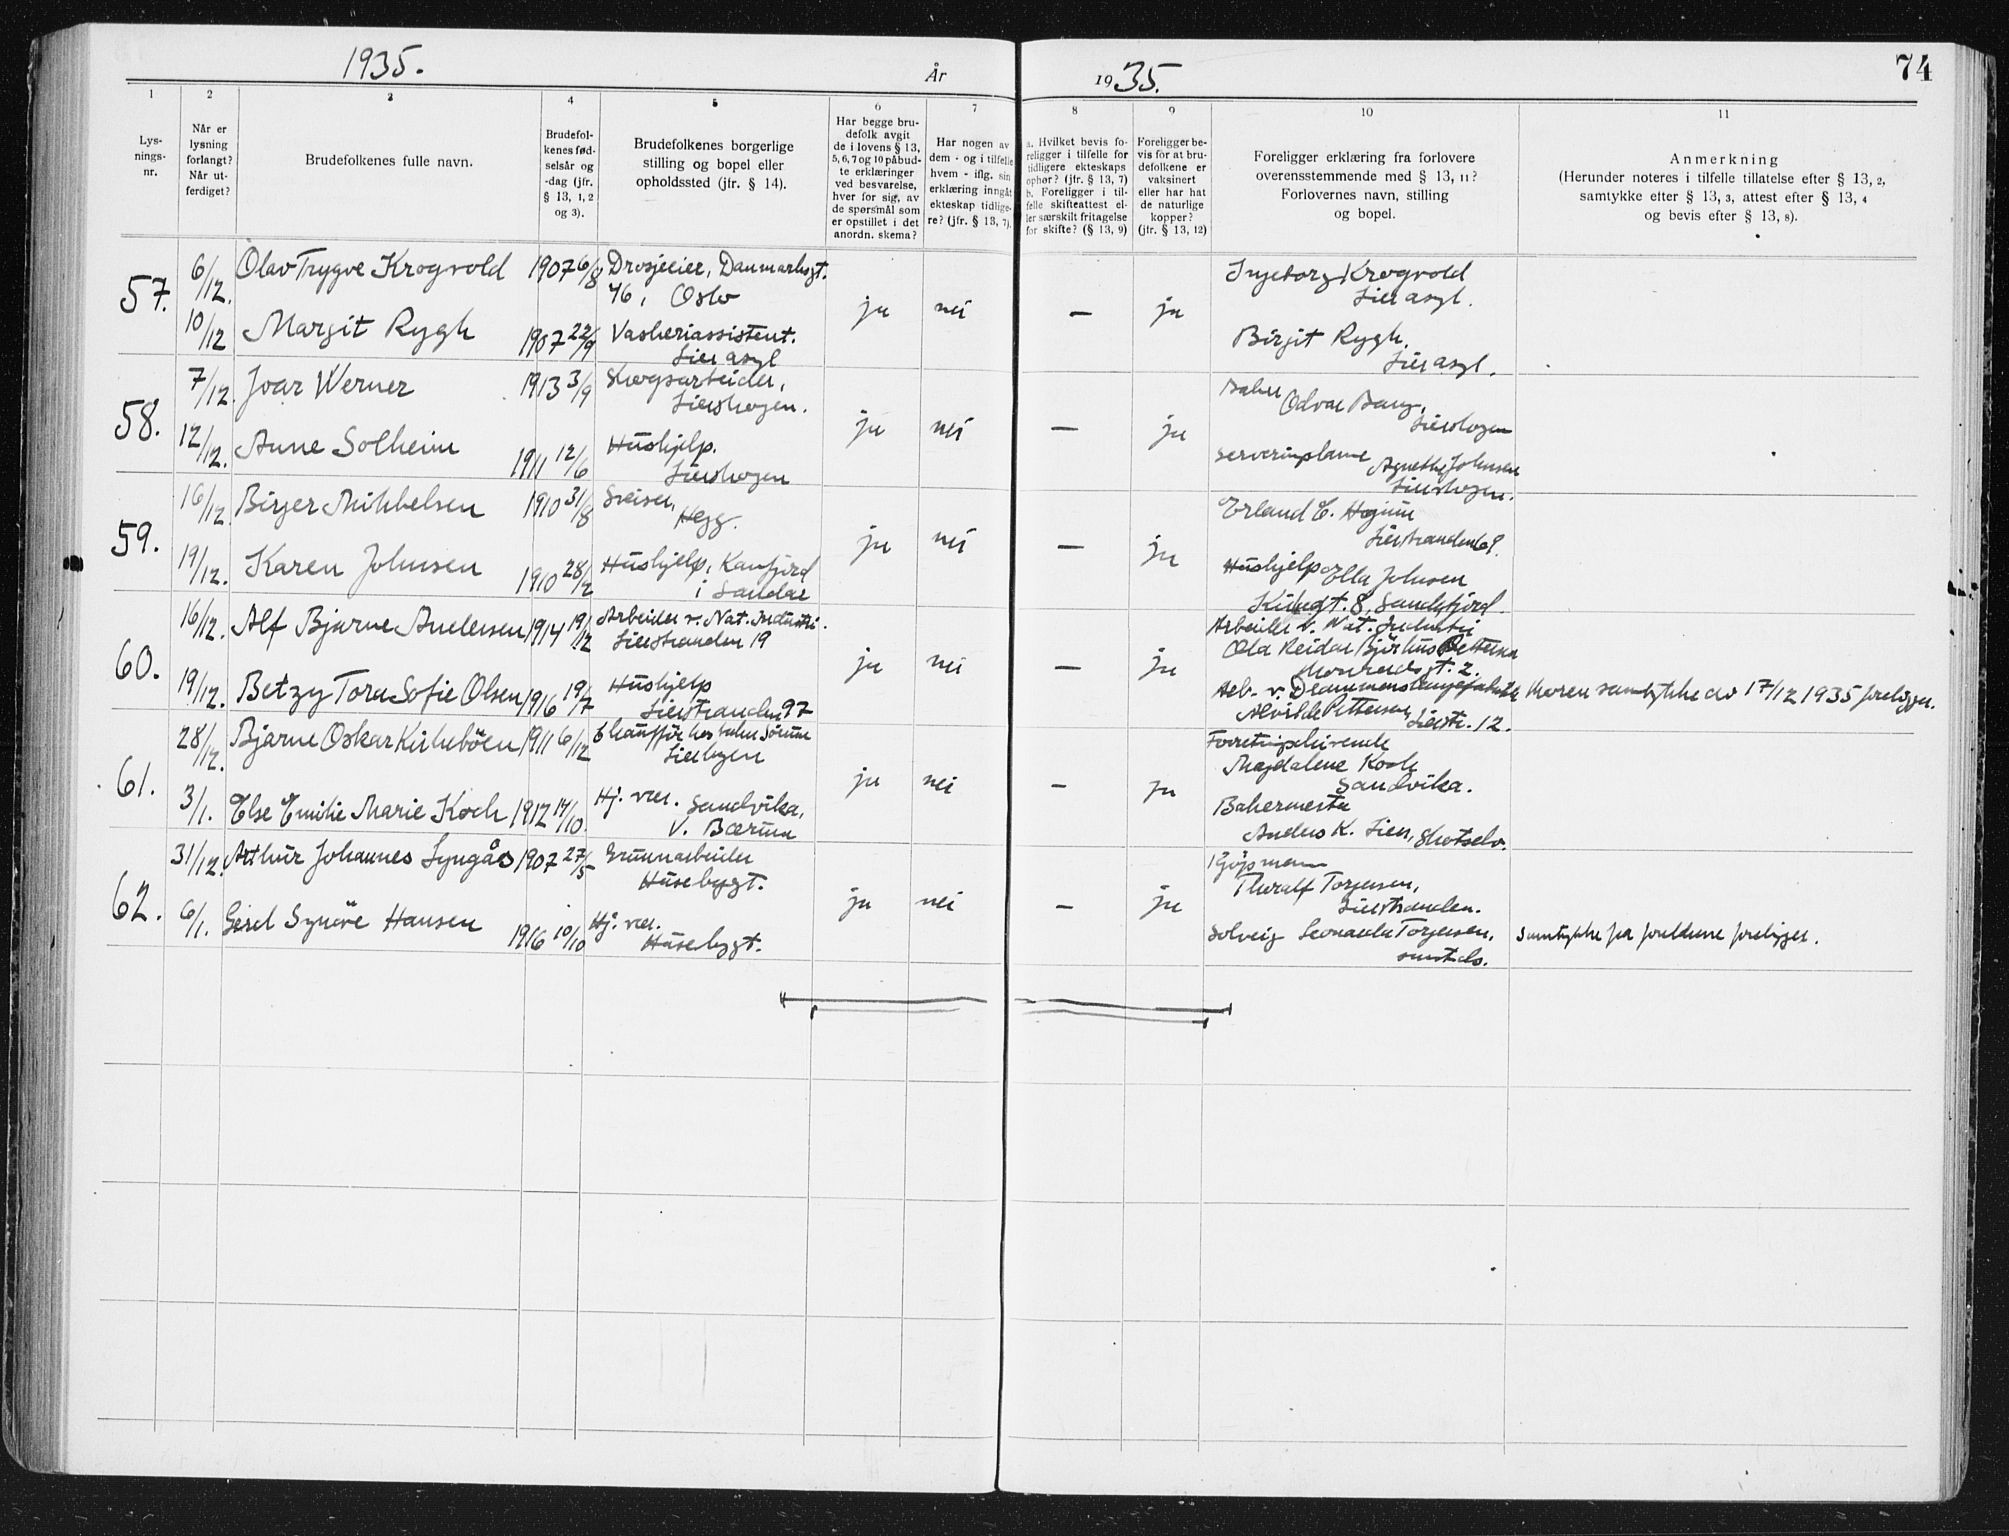 1935.
År
1935.
74
1
2
3
4
5
6
7
8
9
10
11
Lys-
nings-
nr.
Når er
lysning
forlangt?
Når ut-
ferdiget?
Brudefolkenes fulle navn.
Brudefol-
kenes fød-
selsår og
-dag (jfr.
§ 13, 1, 2
og 3).
Brudefolkenes borgerlige
stilling og bopel eller
opholdssted (jfr. § 14).
Har begge bru-
defolk avgit
de i lovens § 13,
5, 6, 7 og 10 påbud-
te erklæringer
ved besvarelse,
hver for sig, av
de spørsmål som
er opstillet i det
anordn. skema?
Har nogen av
dem - og i tilfelle
hvem - iflg. sin
erklæring inngåt
ekteskap tidlige-
re? (jfr. § 13, 7).
a. Hvilket bevis fo-
religger i tilfelle for
tidligere ekteskaps
ophør? (jfr. § 13, 7)
b. Foreligger i til-
felle skifteattest el-
ler særskilt fritagelse
for skifte? (§ 13, 9)
Foreligger be-
vis for at bru-
defolkene er
vaksinert
eller har hat
de naturlige
kopper?
(jfr. § 13, 12)
Foreligger erklæring fra forlovere
overensstemmende med § 13, 11?
Forlovernes navn, stilling
og bopel.
Anmerkning
(Herunder noteres i tilfelle tillatelse efter § 13, 2,
samtykke efter § 13, 3, attest efter § 13, 4
og bevis efter § 13, 8).
57.
6/12.
Olav Trygve Krogvold
1907 6/8
Drosjeeier, Danmarksgt.
46, Oslo
ja
nei
—
ja
Ingeborg Krogvold
Lier asyl.
10/12
Margit Rygh
1907 22/9
Vaskeriassistent.
Lier asyl
Birgit Rygh.
Lier asyl.
58.
7/12.
Joar Werner
1913 3/9
Skogsarbeider,
Lierskogen.
ja
nei
—
ja
Odvar Bang,
Lierskogen
12/12.
Anne Solheim
1911 12/6
Hushjelp.
Lierskogen
Agnethe Johnsen
Lierskogen.
59.
16/12.
Birger Mikkelsen
1910 31/8
Sveiser,
Hegg.
ja
nei
—
ja
Erland E.
Lierstranden 69.
19/12.
Karen Johnsen
1910 28/2
Hushjelp,
i Sandar
Hushjelp Ella Johnsen
8, Sandefjord.
60.
16/12.
Alf Bjarne Andersen
1914 19/12
Arbeider v. Nat. Industri.
Lierstranden 19
ja
nei
—
ja
Arbeider v. Nat. Industri
Ola Reidar Pettersen
2.
19/12.
Betzy Tora Sofie Olsen
1916 19/7
Hushjelp
Lierstranden 97
Arb. v. Drammens
Alvilde Pettersen, Lierstr. 12.
Moren samtykke av 17/12 1935 foreligger.
61.
28/12.
Bjarne Oskar Kirkebøen
1911 6/12
Chauffør hos
Lierbyen
ja
nei
–
ja
Forretningsdrivende
Magdalene Koch
Sandvika.
3/1.
Else Emilie Marie Koch
1912 17/10
Hj. vær. Sandvika,
V. Bærum
Bakermester
Anders K. Lien, Skotselv.
62.
31/12.
Arthur Johannes Lyngås
1907 27/5
Grunnarbeider
Husebygt.
ja
nei
–
ja
Kjøpmann
Thoralf Torjersen,
Lierstranden.
6/1.
Gerd Synøve Hansen
1916 10/10
Hj. vær.
Husebygt.
Solveig Leonarda Torjersen,
samstds.
Samtykke fra foreldrene foreligger.